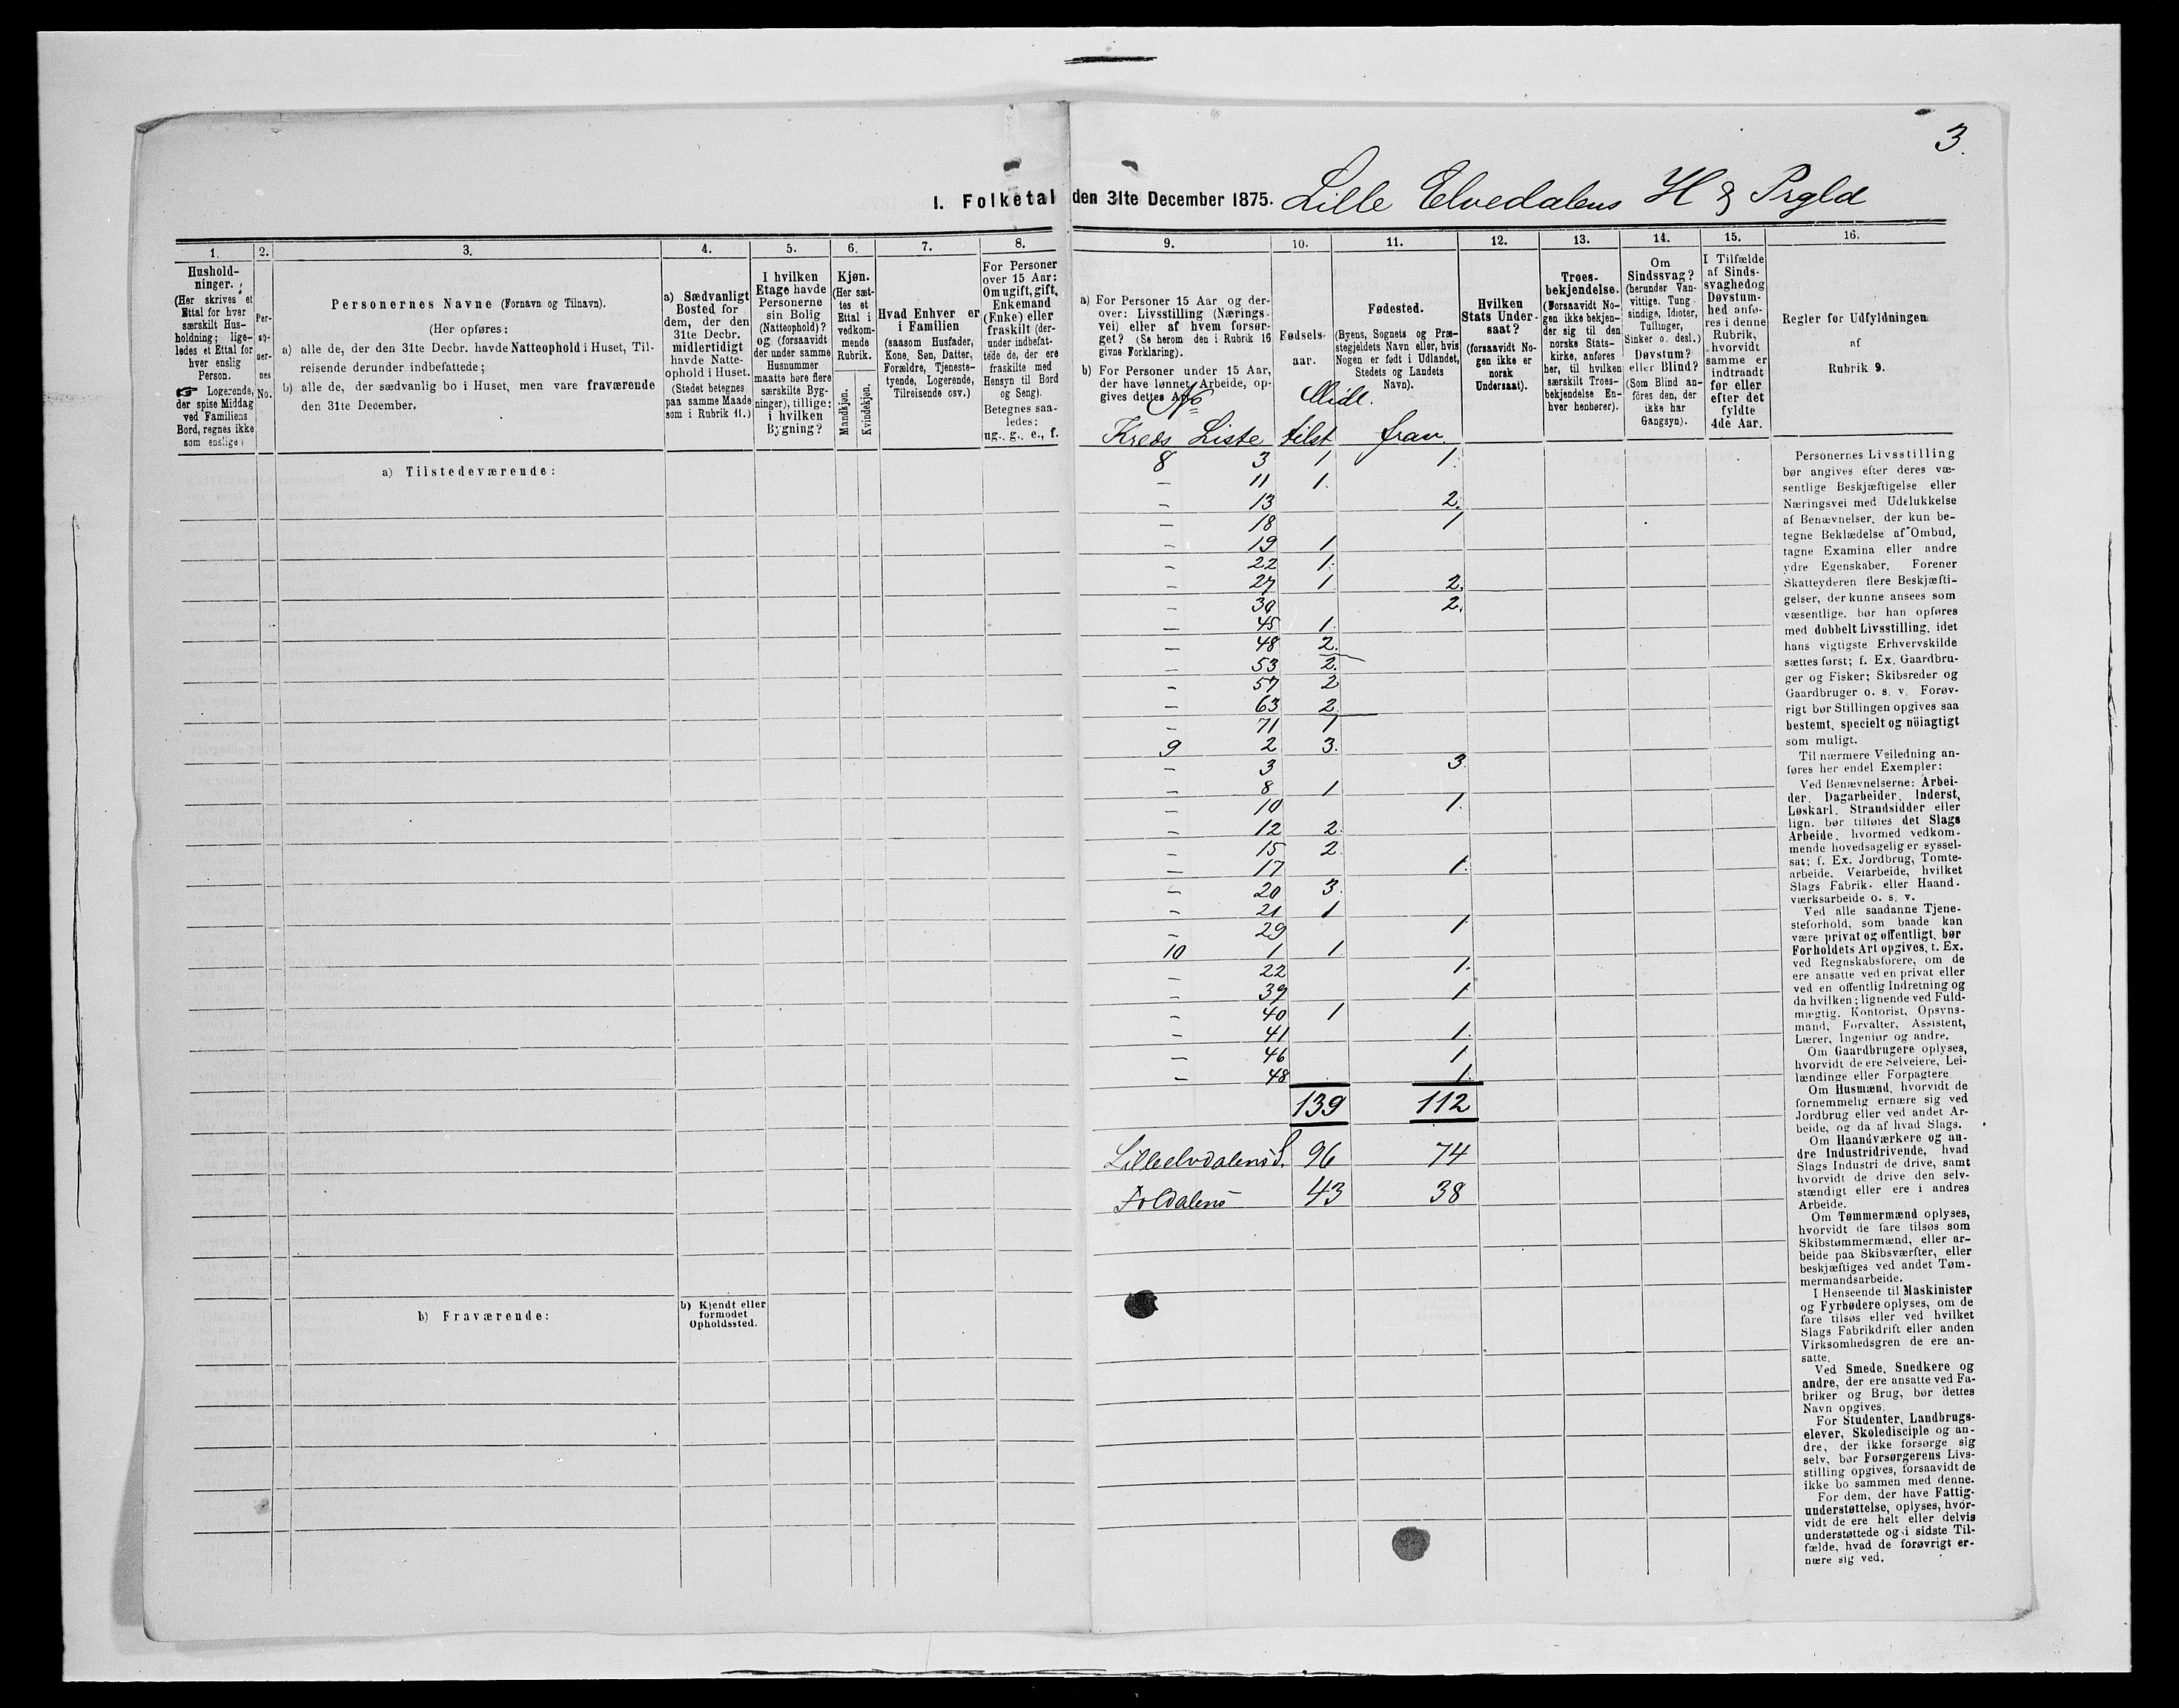 3.
I. Folketal den 31te December 1875. Lille Elvedalens H & Prgld
1.
2.
3.
4.
5.
6.
7.
8.
9.
10.
11.
12.
13.
14.
15.
16.
Hushold-
ninger.
(Her skrives et
Ettal for hver
særskilt Hus-
holdning; lige-
ledes et Ettal for
hver enslig
Person.
☞ Logerende,
der spise Middag
ved Familiens
Bord, regnes ikke
som enslige)
Per-
so-
ner-
nes
No.
Personernes Navne (Fornavn og Tilnavn).
(Her opføres:
a) alle de, der den 31te Decbr. havde Natteophold i Huset, Til-
reisende derunder indbefattede;
b) alle de, der sædvanlig bo i Huset, men vare fraværende
den 31te December.
a) Sædvanligt
Bosted for
dem, der den
31te Decbr.
midlertidigt
havde Natte-
ophold i Huset.
(Stedet betegnes
paa samme Maade
som i Rubrik 11.)
I hvilken
Etage havde
Personerne
sin Bolig
(Natteophold)?
og (forsaavidt
der under samme
Husnummer
maatte høre flere
særskilte Byg-
ninger), tillige:
i hvilken
Bygning?
Kjøn.
(Her sæt-
tes et
Ettal i
vedkom-
mende
Rubrik.
Mandkjøn.
Kvindekjøn.
Hvad Enhver er
i Familien
(saasom Husfader,
Kone, Søn, Datter,
Forældre, Tjeneste-
tyende, Logerende,
Tilreisende osv.)
For Personer
over 15 Aar:
Om ugift, gift,
Enkemand
(Enke) eller
fraskilt (der-
under indbefat-
tede de, der ere
fraskilte med
Hensyn til Bord
og Seng).
Betegnes saa-
ledes:
ug., g., e., f.
a) For Personer 15 Aar og der-
over: Livsstilling (Nærings-
vei) eller af hvem forsør-
get? (Se herom den i Rubrik 16
givne Forklaring).
b) For Personer under 15 Aar,
der have lønnet Arbeide, op-
gives dettes Art.
Fødsels-
aar.
Fødested.
(Byens, Sognets og Præ-
stegjeldets Navn eller, hvis
Nogen er født i Udlandet,
Stedets og Landets
Navn).
Hvilken
Stats Under-
saat?
(forsaavidt No-
gen ikke er
norsk
Undersaat).
Troes-
bekjendelse.
(Forsaavidt No-
gen ikke bekjen-
der sig til den
norske Stats-
kirke, anføres
her, til hvilken
særskilt Troes-
bekjendelse En-
hver henhører).
Om
Sindssvag?
(herunder Van-
vittige, Tung-
sindige, Idioter,
Tullinger,
Sinker o. desl.)
Døvstum?
eller Blind?
(Som Blind an-
føres den, der
ikke har
Gangsyn).
I Tilfælde
af Sinds-
svaghed og
Døvstum-
hed anfø-
res i denne
Rubrik,
hvorvidt
samme er
indtraadt
før eller
efter det
fyldte
4de Aar.
Regler for Udfyldningen
af
Rubrik 9.
No Midl.
Kreds Liste tilst frav.
a) Tilstedeværende:
8 3 1 1.
– 11 1.
– 13 2.
– 18 1
– 19 1
– 22 1.
– 27 1 2.
– 30 2.
– 45 1.
– 48 2.
– 53 2.
– 57 2
– 63 2
– 71 1
9 2 3.
– 3 3
– 8 1
– 10 1.
– 12 2.
– 15 2.
– 17 1.
– 20 3.
– 21 1
– 29 1
10 1 1.
– 22 1.
– 39 1
– 40 1
– 41 1.
– 46 1
– 48 1.
139 112
Lilleelvdalens S. 96 74
Foldalens 43 38
b) Fraværende:
b) Kjendt eller
formodet
Opholdssted.
Personernes Livsstilling
bør angives efter deres væ-
sentlige Beskjæftigelse eller
Næringsvei med Udelukkelse
af Benævnelser, der kun be-
tegne Beklædelse af Ombud,
tagne Examina eller andre
ydre Egenskaber. Forener
Skatteyderen flere Beskjæfti-
gelser, der kunne ansees som
væsentlige, bør han opføres
med dobbelt Livsstilling, idet
hans vigtigste Erhvervskilde
sættes først; f. Ex. Gaardbru-
ger og Fisker; Skibsreder og
Gaardbruger o. s. v. Forøv-
rigt bør Stillingen opgives saa
bestemt, specielt og nöiagtigt
som muligt.
Til nærmere Veiledning an-
føres her endel Exempler:
Ved Benævnelserne: Arbei-
der, Dagarbeider, Inderst,
Løskarl, Strandsidder eller
lign. bør tilføies det Slags
Arbeide, hvormed vedkom-
mende hovedsagelig er syssel-
sat; f. Ex. Jordbrug, Tomte-
arbeide, Veiarbeide, hvilket
Slags Fabrik- eller Haand-
værksarbeide o. s. v.
Ved alle saadanne Tjene-
steforhold, som baade kan
være privat og offentligt, bør
Forholdets Art opgives, t. Ex.
ved Regnskabsførere, om de
ere ansatte ved en privat eller
ved en offentlig Indretning og
da hvilken; lignende ved Fuld-
mægtig, Kontorist, Opsyns-
mand, Forvalter, Assistent,
Lærer, Ingeniør og andre.
Om Gaardbrugere oplyses,
hvorvidt de ere Selveiere, Lei-
lændinge eller Forpagtere.
Om Husmænd, hvorvidt de
fornemmelig ernære sig ved
Jordbrug eller ved andet Ar-
beide, og da af hvad Slags.
Om Haandværkere og an-
dre Industridrivende, hvad
Slags Industri de drive, samt
hvorvidt de drive den selv-
stændigt eller ere i andres
Arbeide.
Om Tømmermænd oplyses,
hvorvidt de fare tilsøs som
Skibstømmermænd, eller ar-
beide paa Skibsværfter, eller
beskjæftiges ved andet Tøm-
mermandsarbeide.
I Henseende til Maskinister
og Fyrbødere oplyses, om de
fare tilsøs eller ved hvilket
Slags Fabrikdrift eller anden
Virksomhedsgren de ere an-
satte.
Ved Smede, Snedkere og
andre, der ere ansatte ved Fa-
briker og Brug, bør dettes
Navn opgives.
For Studenter, Landbrugs-
elever, Skoledisciple og an-
dre, der ikke forsørge sig
selv, bør Forsørgerens Livs-
stilling opgives, forsaavidt de
ikke bo sammen med denne.
For dem, der have Fattig-
understøttelse, oplyses, hvor-
vidt de ere helt eller delvis
understøttede og i sidste Til-
fælde, hvad de forøvrigt er-
nære sig ved.